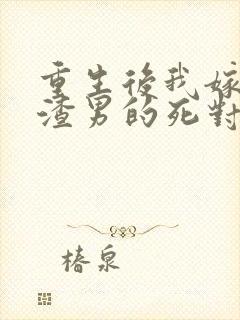 重生後我嫁
渣男的死對
椿泉